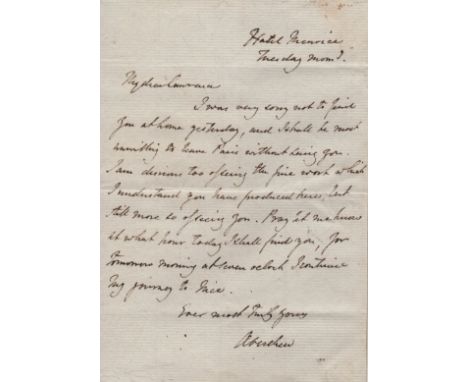 Hotel Meurice
Tuesday morng.
My dear Lawrence
I was very sorry not to find
you at home yesterday, and I shall be most
unwilling to leave Paris without seeing you.
I am desirous too of seeing the fine work which
I understand you have produced here, but
still more so of seeing you. Pray let me know
at what hour today I shall find you, for
tomorrow morning at seven oclock I continue
my journey to Nice.
Ever most truly yours
Aberdeen